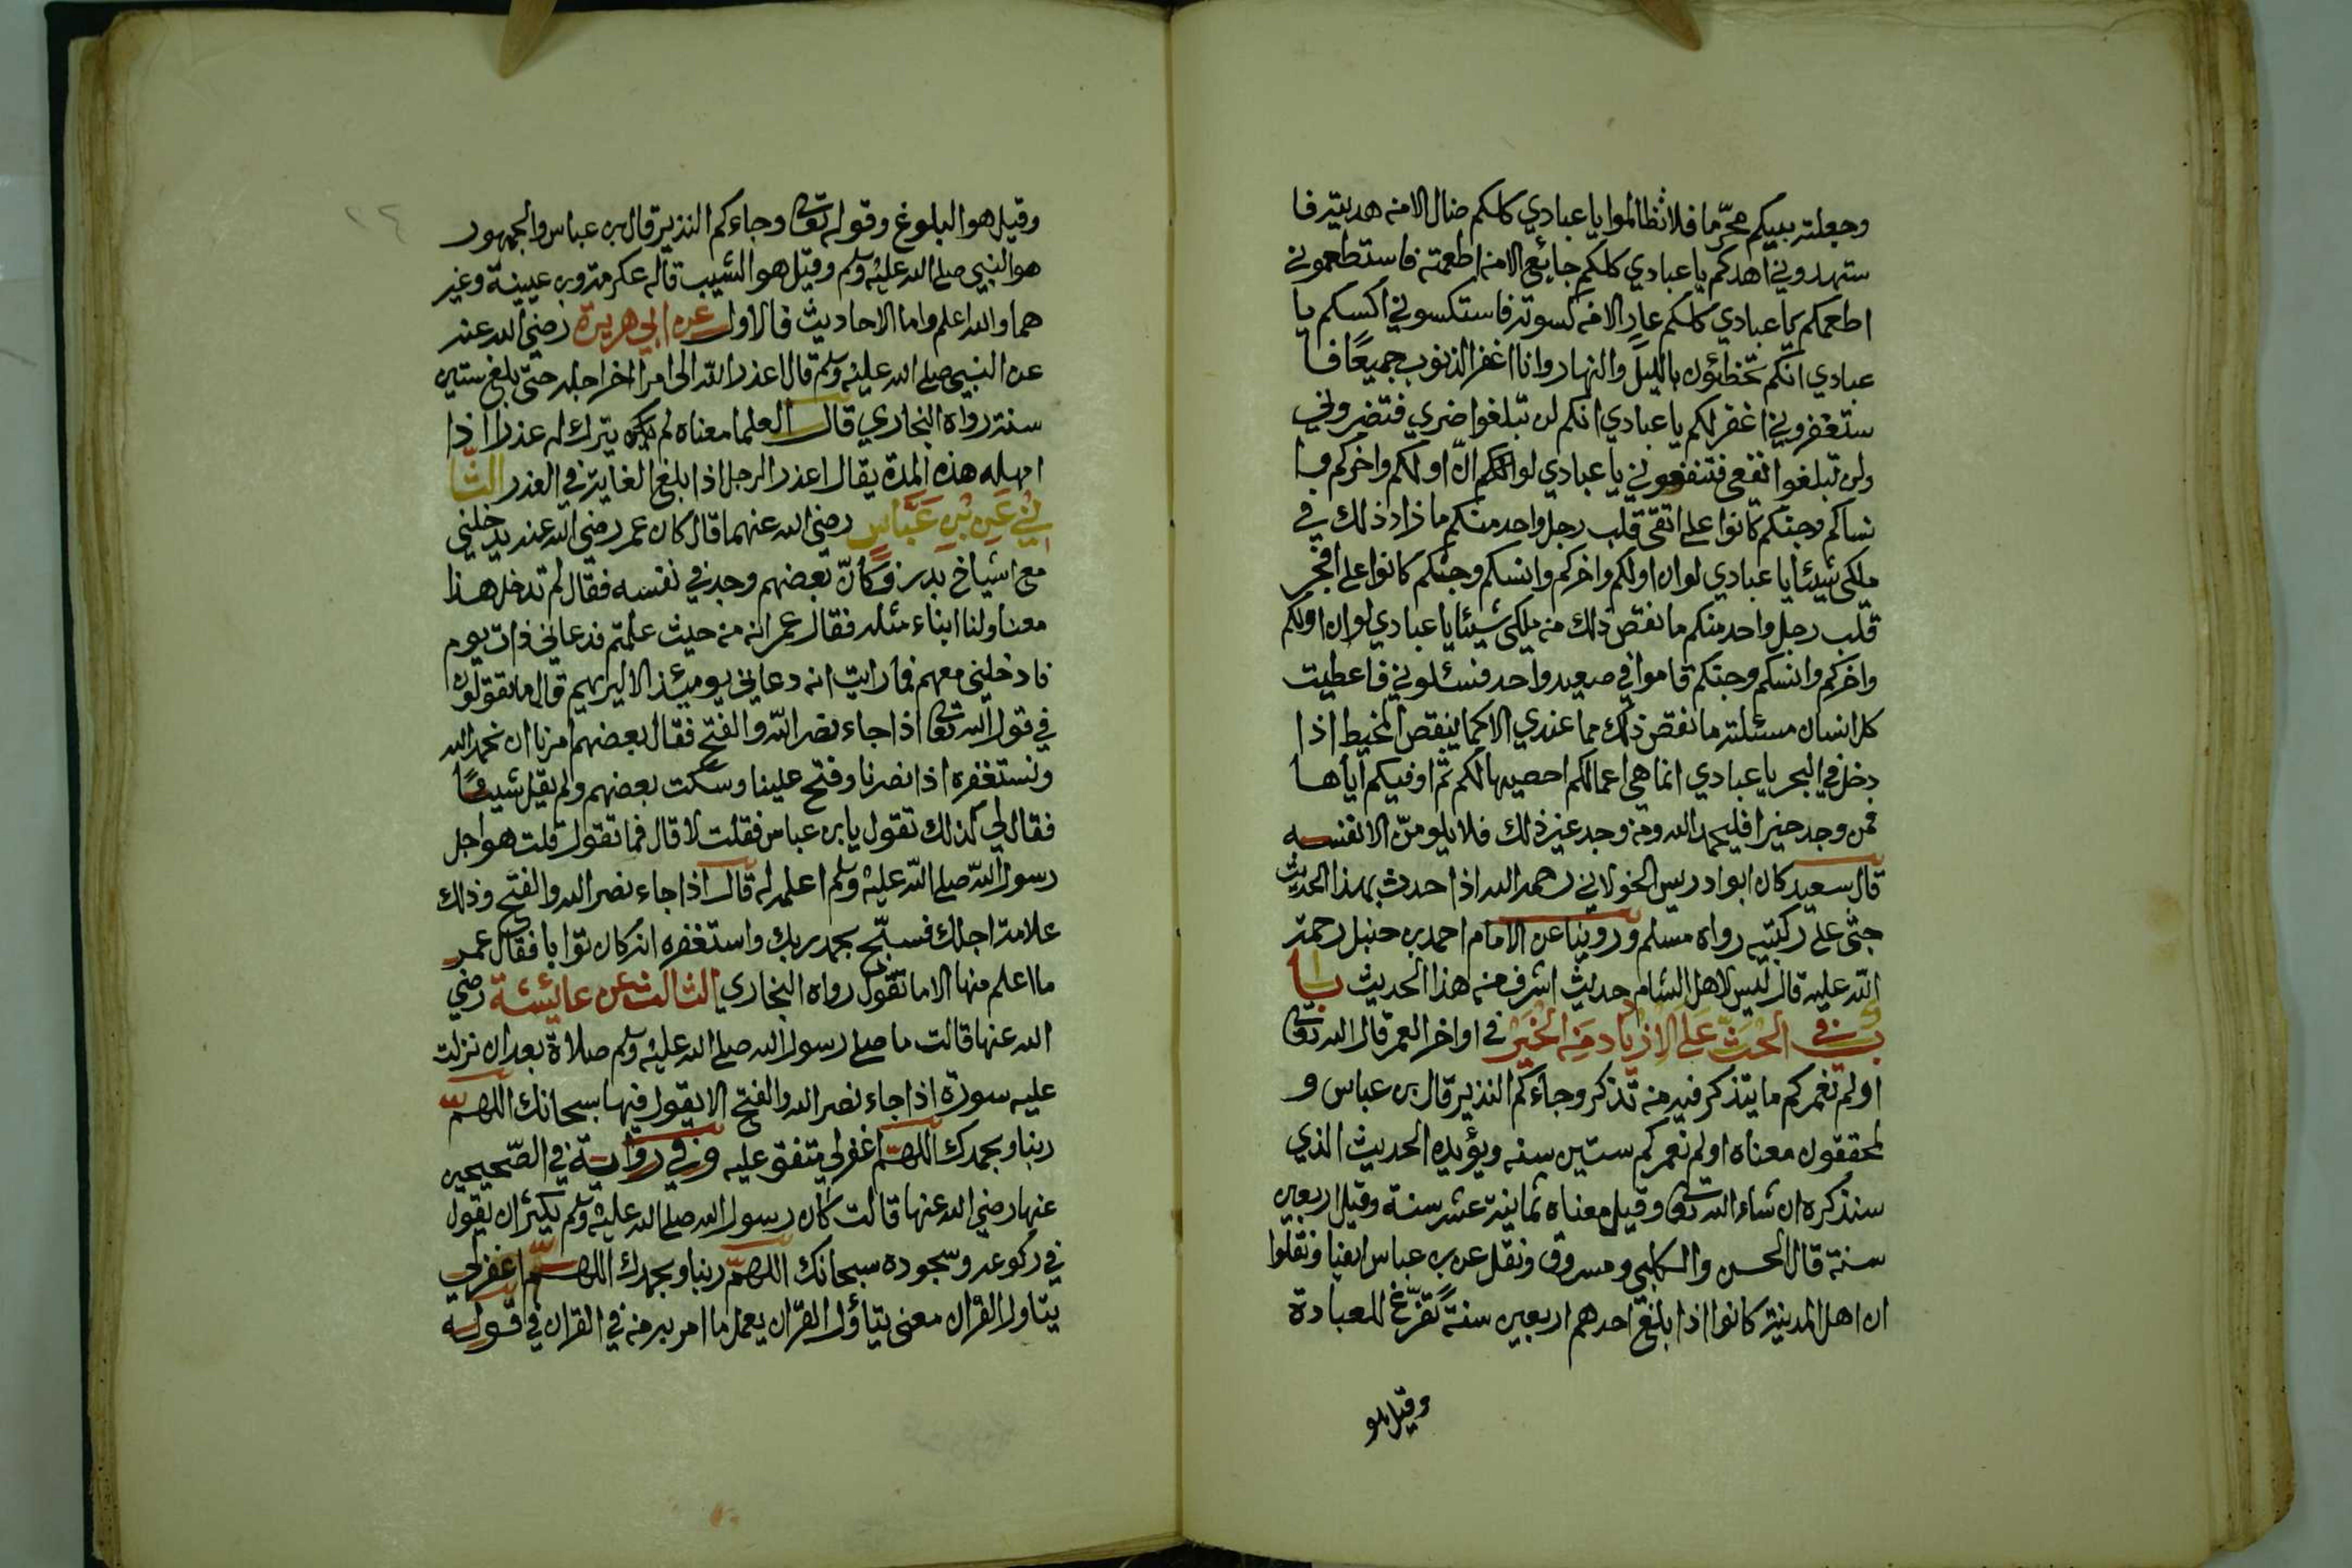 وجعلته بينكم محرّما فلا تظالموا يا عبادي كلكم ضال الا من هديته فا
ستهدوني اهدكم يا عبادي كلكم جائع الا من اطعمته فاستطعموني
اطعمكم يا عبادي كلكم عار الا من كسوته فاستكسوني اكسكم يا
عبادي انكم تخطئون بالليل والنهار وانا اغفر الذنوب جميعًا فا
ستغفروني اغفر لكم يا عبادي انكم لن تبلغوا ضري فتضروني
ولن تبلغوا نفعي فتنفعوني يا عبادي لو انّ اولكم واخركم وا
نساكم وجنكم كانوا على اتقى قلب رجل واحد منكم ما زاد ذلك في
ملكي شيئا يا عبادي لو ان اولكم واخركم وانسكم وجنكم كانوا على افجر
قلب رجل واحد منكم ما نقص ذلك من ملكي شيئا يا عبادي لو ان اولكم
واخركم وانسكم وجنكم قاموا في صعيد واحد فسئلوني فاعطيت
كل انسان مسئلته ما نقص ذلك مما عندي الا كما ينقص المخيط اذا
دخل في البحر يا عبادي انما هي اعمالكم احصيها لكم ثم اوفيكم اياها
فمن وجد خيرا فليحمد الله ومن وجد غير ذلك فلا يلومنّ الا نفسه
قال سعيد كان ابو ادريس الخولاني رحمه الله اذا حدث بهذا الحديث
جثى على ركبتيه رواه مسلم وروينا عن الامام احمد بن حنبل رحمة
الله عليه قال ليس لاهل الشام حديث اشرف من هذا الحديث با
ب في الحث على الازدياد من الخير في اواخر العمر قال الله تعالى
اولم نعمركم ما يتذكر فيه من تذكر وجاءكم النذير قال بن عباس و
لمحققون معناه اولم نعمركم ستين سنه ويؤيده الحديث الذي
سنذكره ان شاء الله تعالى وقيل معناه ثمانية عشر سنة وقيل اربعين
سنة قال الحسن والكلبي ومسروق ونقل عن بن عباس ايضا ونقلوا
ان اهل المدينة كانوا اذا بلغ احدهم اربعين سنةً تفرّغ للعبادة
وقيل هو
٢٤
وقيل هو البلوغ وقوله تعالى وجاءكم النذير قال بن عباس والجمهور
هو النبي صلى الله عليه وسلم وقيل هو الشيب قاله عكرمة وبن عيينة وغير
هما والله اعلم واما الاحاديث فالاول عن ابي هريرة رضي الله عنه
عن النبي صلى الله عليه وسلم قال اعذر الله الى امرا اخر اجله حتى بلغ ستين
سنة رواه البخاري قال العلما معناه لم يترك له عذرا اذا
امهله هذه المدة يقال اعذر الرجل اذا بلغ الغاية في العذر الثا
ني عن بن عباس رضي الله عنهما قال كان عمر رضي الله عنه يدخلني
مع اشياخ بدر فكانّ بعضهم وجد في نفسه فقال لم تدخل هذا
معنا ولنا ابناء مثله فقال عمر انه من حيث علمتم فدعاني ذات يوم
فادخلني معهم فما رايت انه دعاني يومئذ الا ليريهم قال ما تقولون
في قول الله تعالى اذا جاء نصر الله والفتح فقال بعضهم امرنا ان نحمد الله
ونستغفره اذا نصرنا وفتح علينا وسكت بعضهم ولم يقل شيئًا
فقال لي كذلك تقول يا بن عباس فقلت لا قال فما تقول قلت هو اجل
رسول الله صلى الله عليه وسلم اعلمه له قال اذا جاء نصر الله والفتح وذلك
علامة اجلك فسبّح بحمد ربك واستغفره انه كان توابا فقال عمر
ما اعلم منها الا ما تقول رواه البخاري الثالث عن عائشة رضي
الله عنها قالت ما صلى رسول الله صلى الله عليه وسلم صلاة بعد ان نزلت
عليه سورة اذا جاء نصر الله والفتح الا يقول فيها سبحانك اللهمّ
ربنا وبحمدك اللهم اغفر لي متفق عليه وفي رواية في الصّحيحين
عنها رضي الله عنها قالت كان رسول الله صلى الله عليه وسلم يكثر ان يقول
في ركوعه وسجوده سبحانك اللهمّ ربنا وبحمدك اللهمّ اغفر لي
يتاول القران معنى يتاؤل القرّان يعمل ما امر به منه في القران في قوله